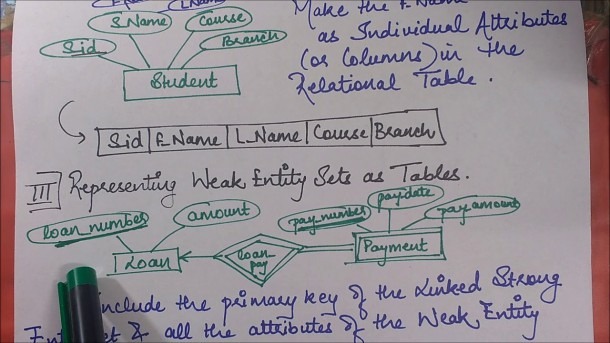 Make the F_Name
S_Name
Course
as Individual Attributes
Sid
Branch
(or Columns) in the
Student
Relational Table.
Sid F_Name L_Name Course Branch
III Representing Weak Entity Sets as Tables.
loan_number
amount
pay_number
pay_date
pay_amount
Loan
loan_pay
Payment
include the primary key of the Linked Strong
& all the attributes of the Weak Entity